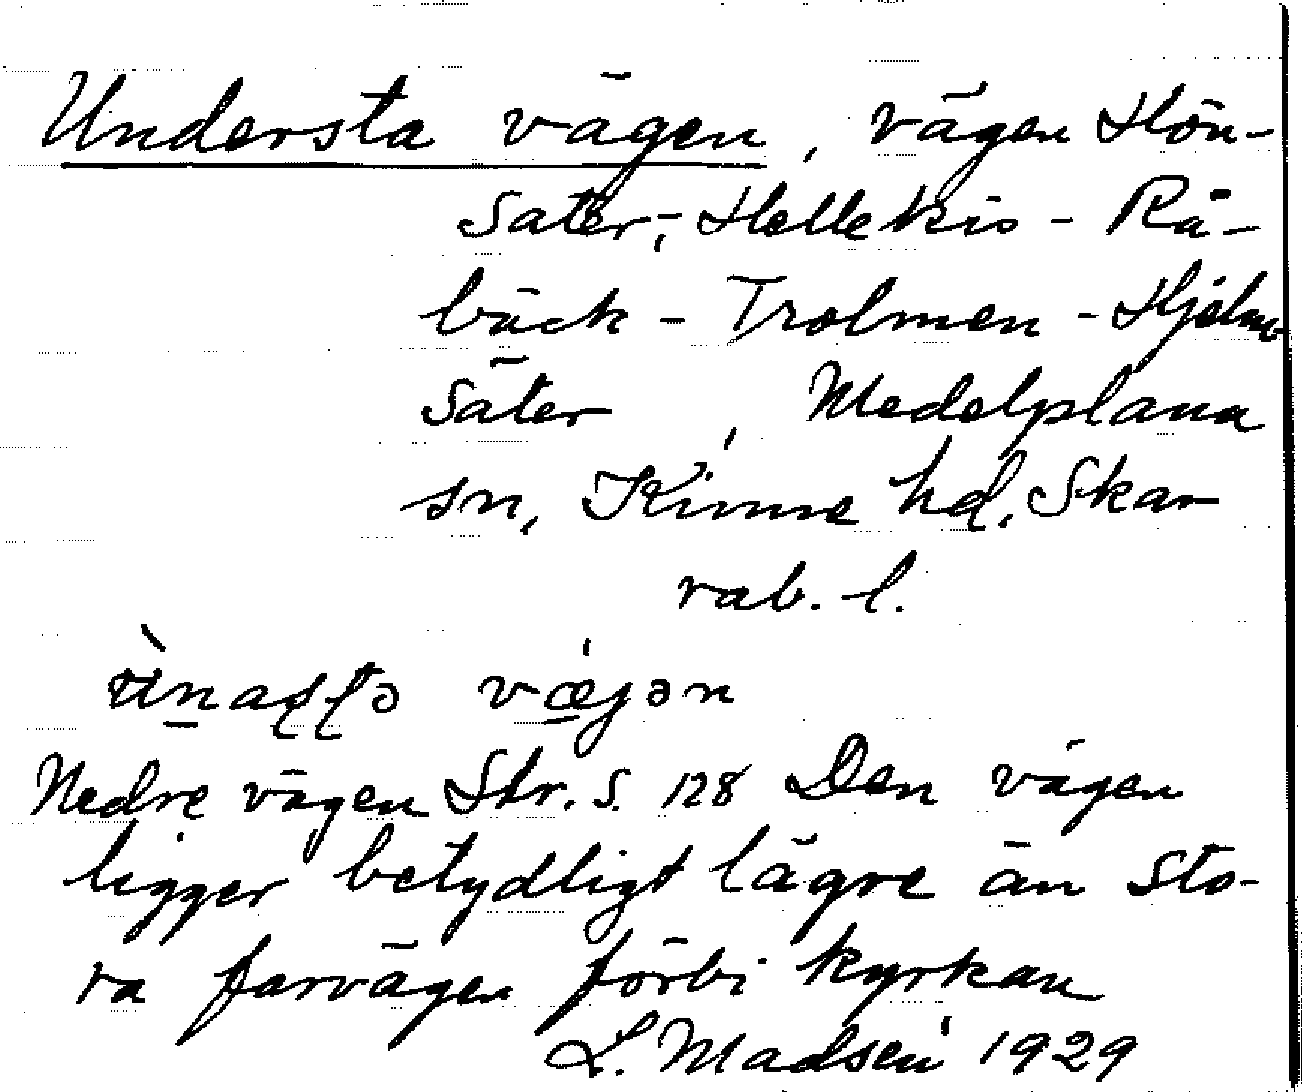 Understa vägen, vägen Hön-
säter,- Hellekis - Rå-
bäck - Trolmen - Hjelm-
säter, Medelplana
sn, Kinne hd. Ska-
rab. l.
vägen
Nedre vägen Str. s. 128 Den vägen
ligger betydligt lägre än sto-
ra farvägen förbi kyrkan
L. Madsén 1929